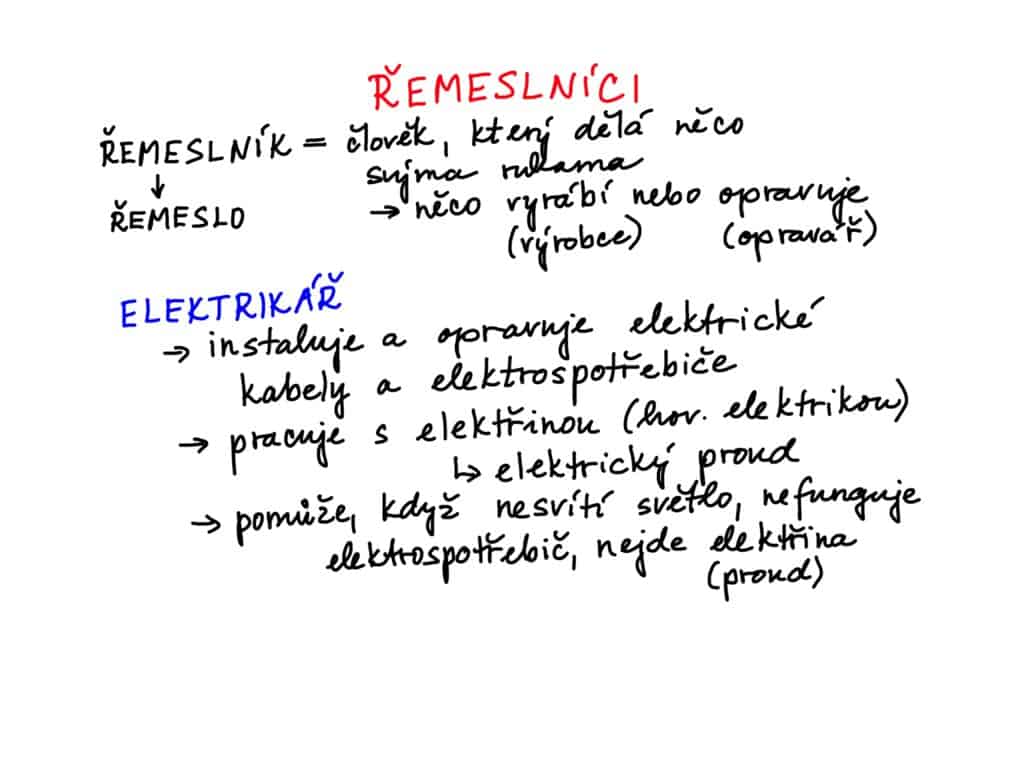 ŘEMESLNÍCI
ŘEMESLNÍK = člověk, který dělá něco
svýma rukama
↓
ŘEMESLO → něco vyrábí nebo opravuje
(výrobce) (opravář)
ELEKTRIKÁŘ
→ instaluje a opravuje elektrické
kabely a elektrospotřebiče
→ pracuje s elektřinou (hov. elektrikou)
↳ elektrický proud
→ pomůže, když nesvítí světlo, nefunguje
elektrospotřebič, nejde elektřina
(proud)